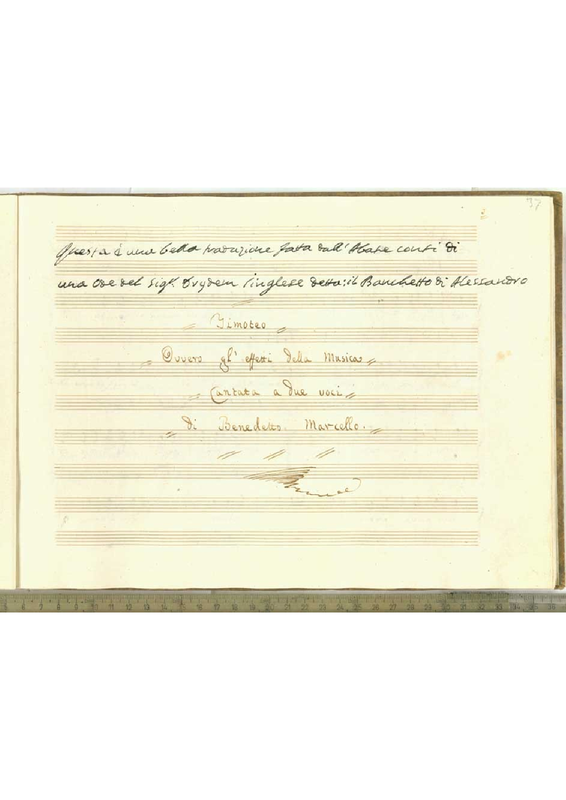 37
Questa è una bella traduzione fatta dall'Abate Conti di
una Ode del Sigr. Drydem Inglese detta: il Banchetto di Alessandro
Timoteo
Ovvero gl' effetti della Musica
Cantata a due voci
di Benedetto Marcello.